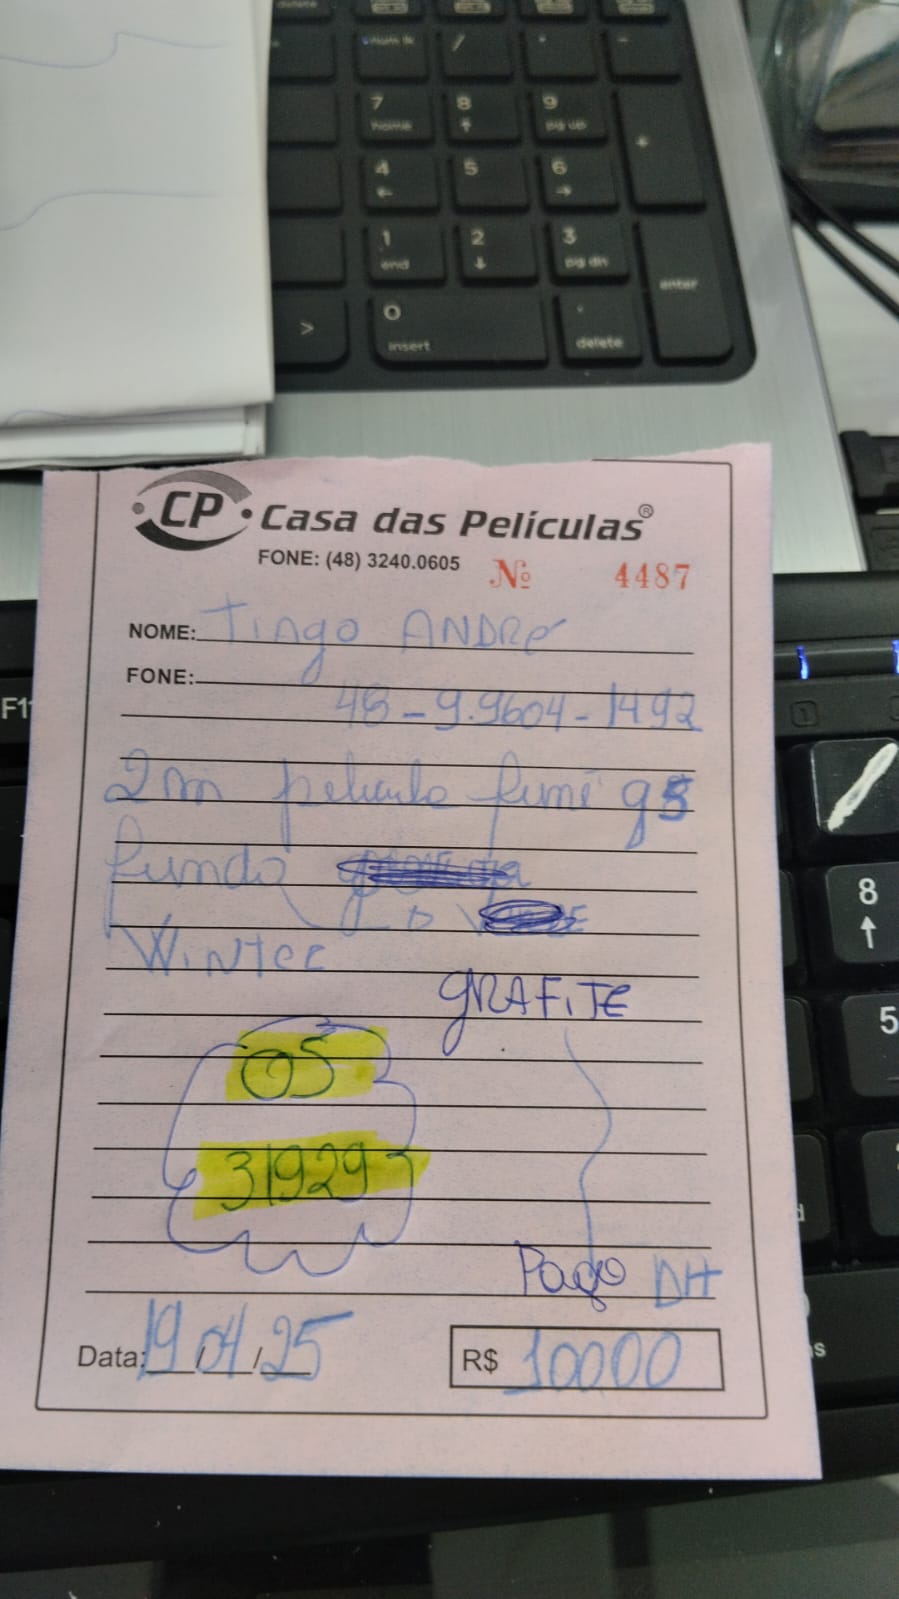 num lk / * -
7 home 8 ↑ 9 pg up +
4 ← 5 6 →
1 end 2 ↓ 3 pg dn enter
> 0 insert . delete
CP Casa das Películas®
FONE: (48) 3240.0605 Nº 4487
NOME: Tiago ANDRÉ
FONE:
48-9.9604-1492
2m película fumê g5
funda
Winter
GRAFITE
05
31929
Pago DH
Data: 19/04/25 R$ 10000
F11
8
↑
5